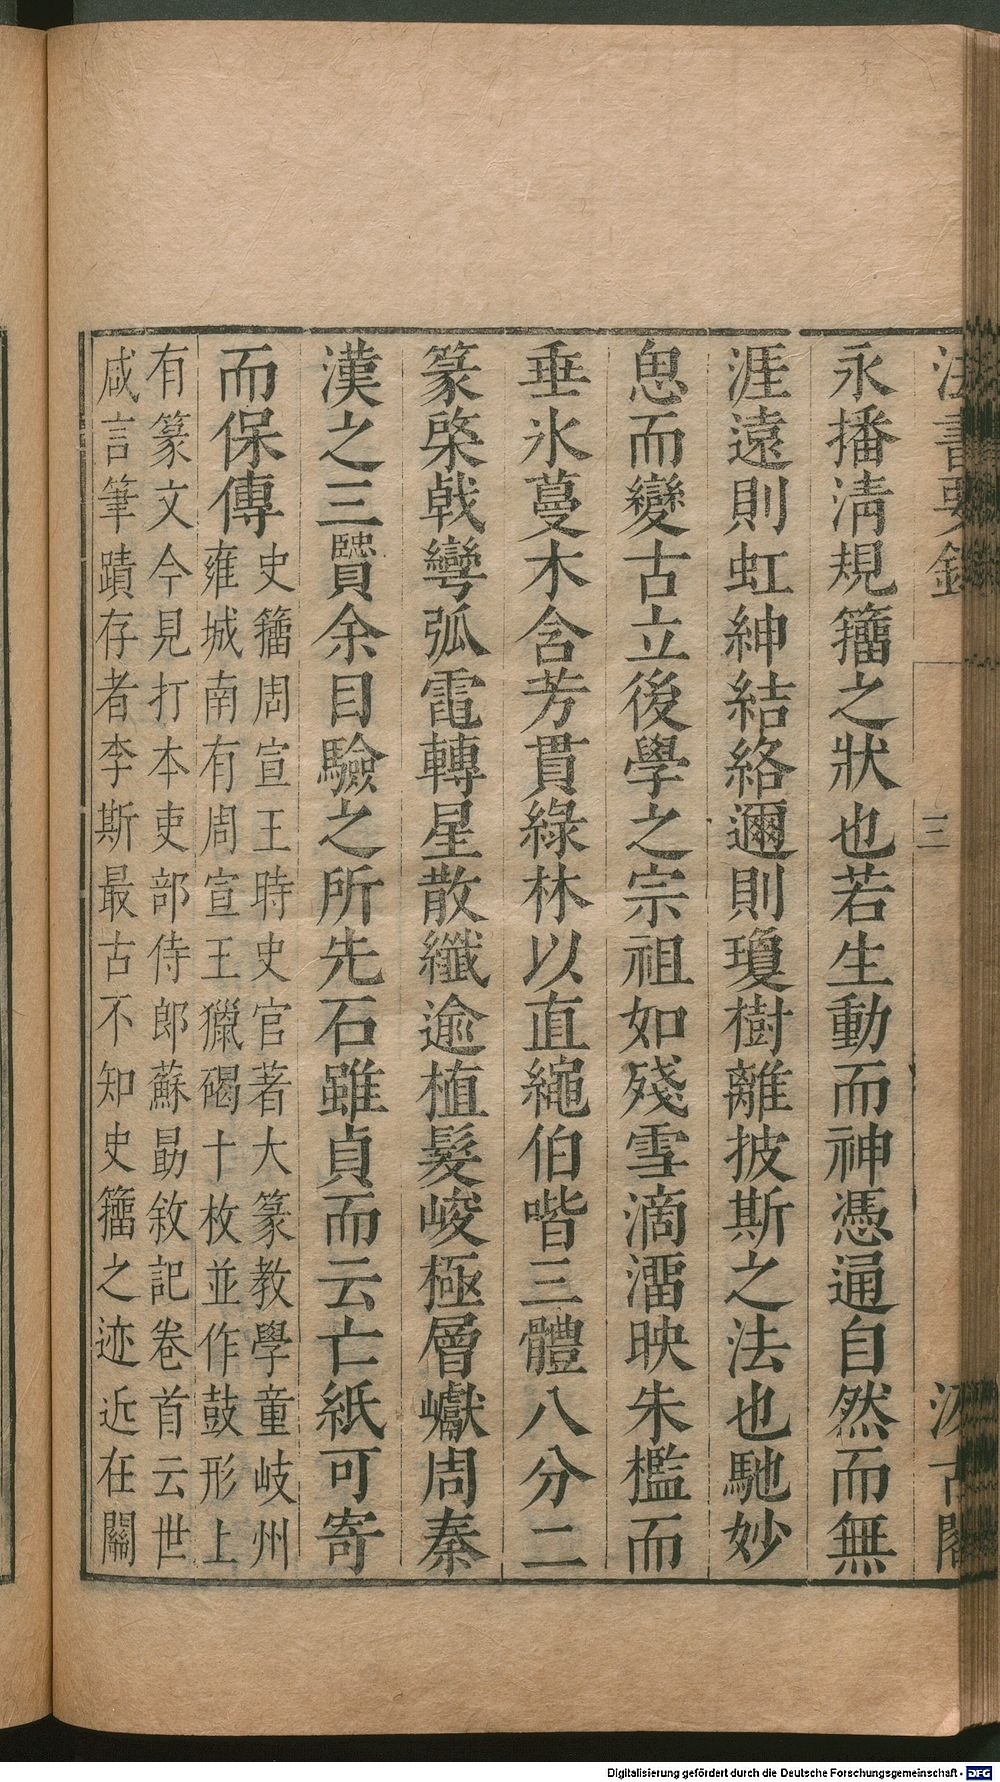 法書要錄
三
汲古閣
永播淸規籒之狀也若生動而神憑通自然而無
涯遠則虹紳結絡邇則瓊樹離披斯之法也馳妙
思而變古立後學之宗祖如殘雪滴溜映朱檻而
垂氷蔓木含芳貫綠林以直繩伯喈三體八分二
篆棨戟彎弧電轉星散纖逾植髮峻極層巘周秦
漢之三賢余目驗之所先石雖貞而云亡紙可寄
而保傳
史籒周宣王時史官著大篆教學童岐州
雍城南有周宣王獵碣十枚並作鼓形上
有篆文今見打本吏部侍郎蘇勗敘記卷首云世
咸言筆蹟存者李斯最古不知史籒之迹近在關
Digitalisierung gefördert durch die Deutsche Forschungsgemeinschaft - DFG